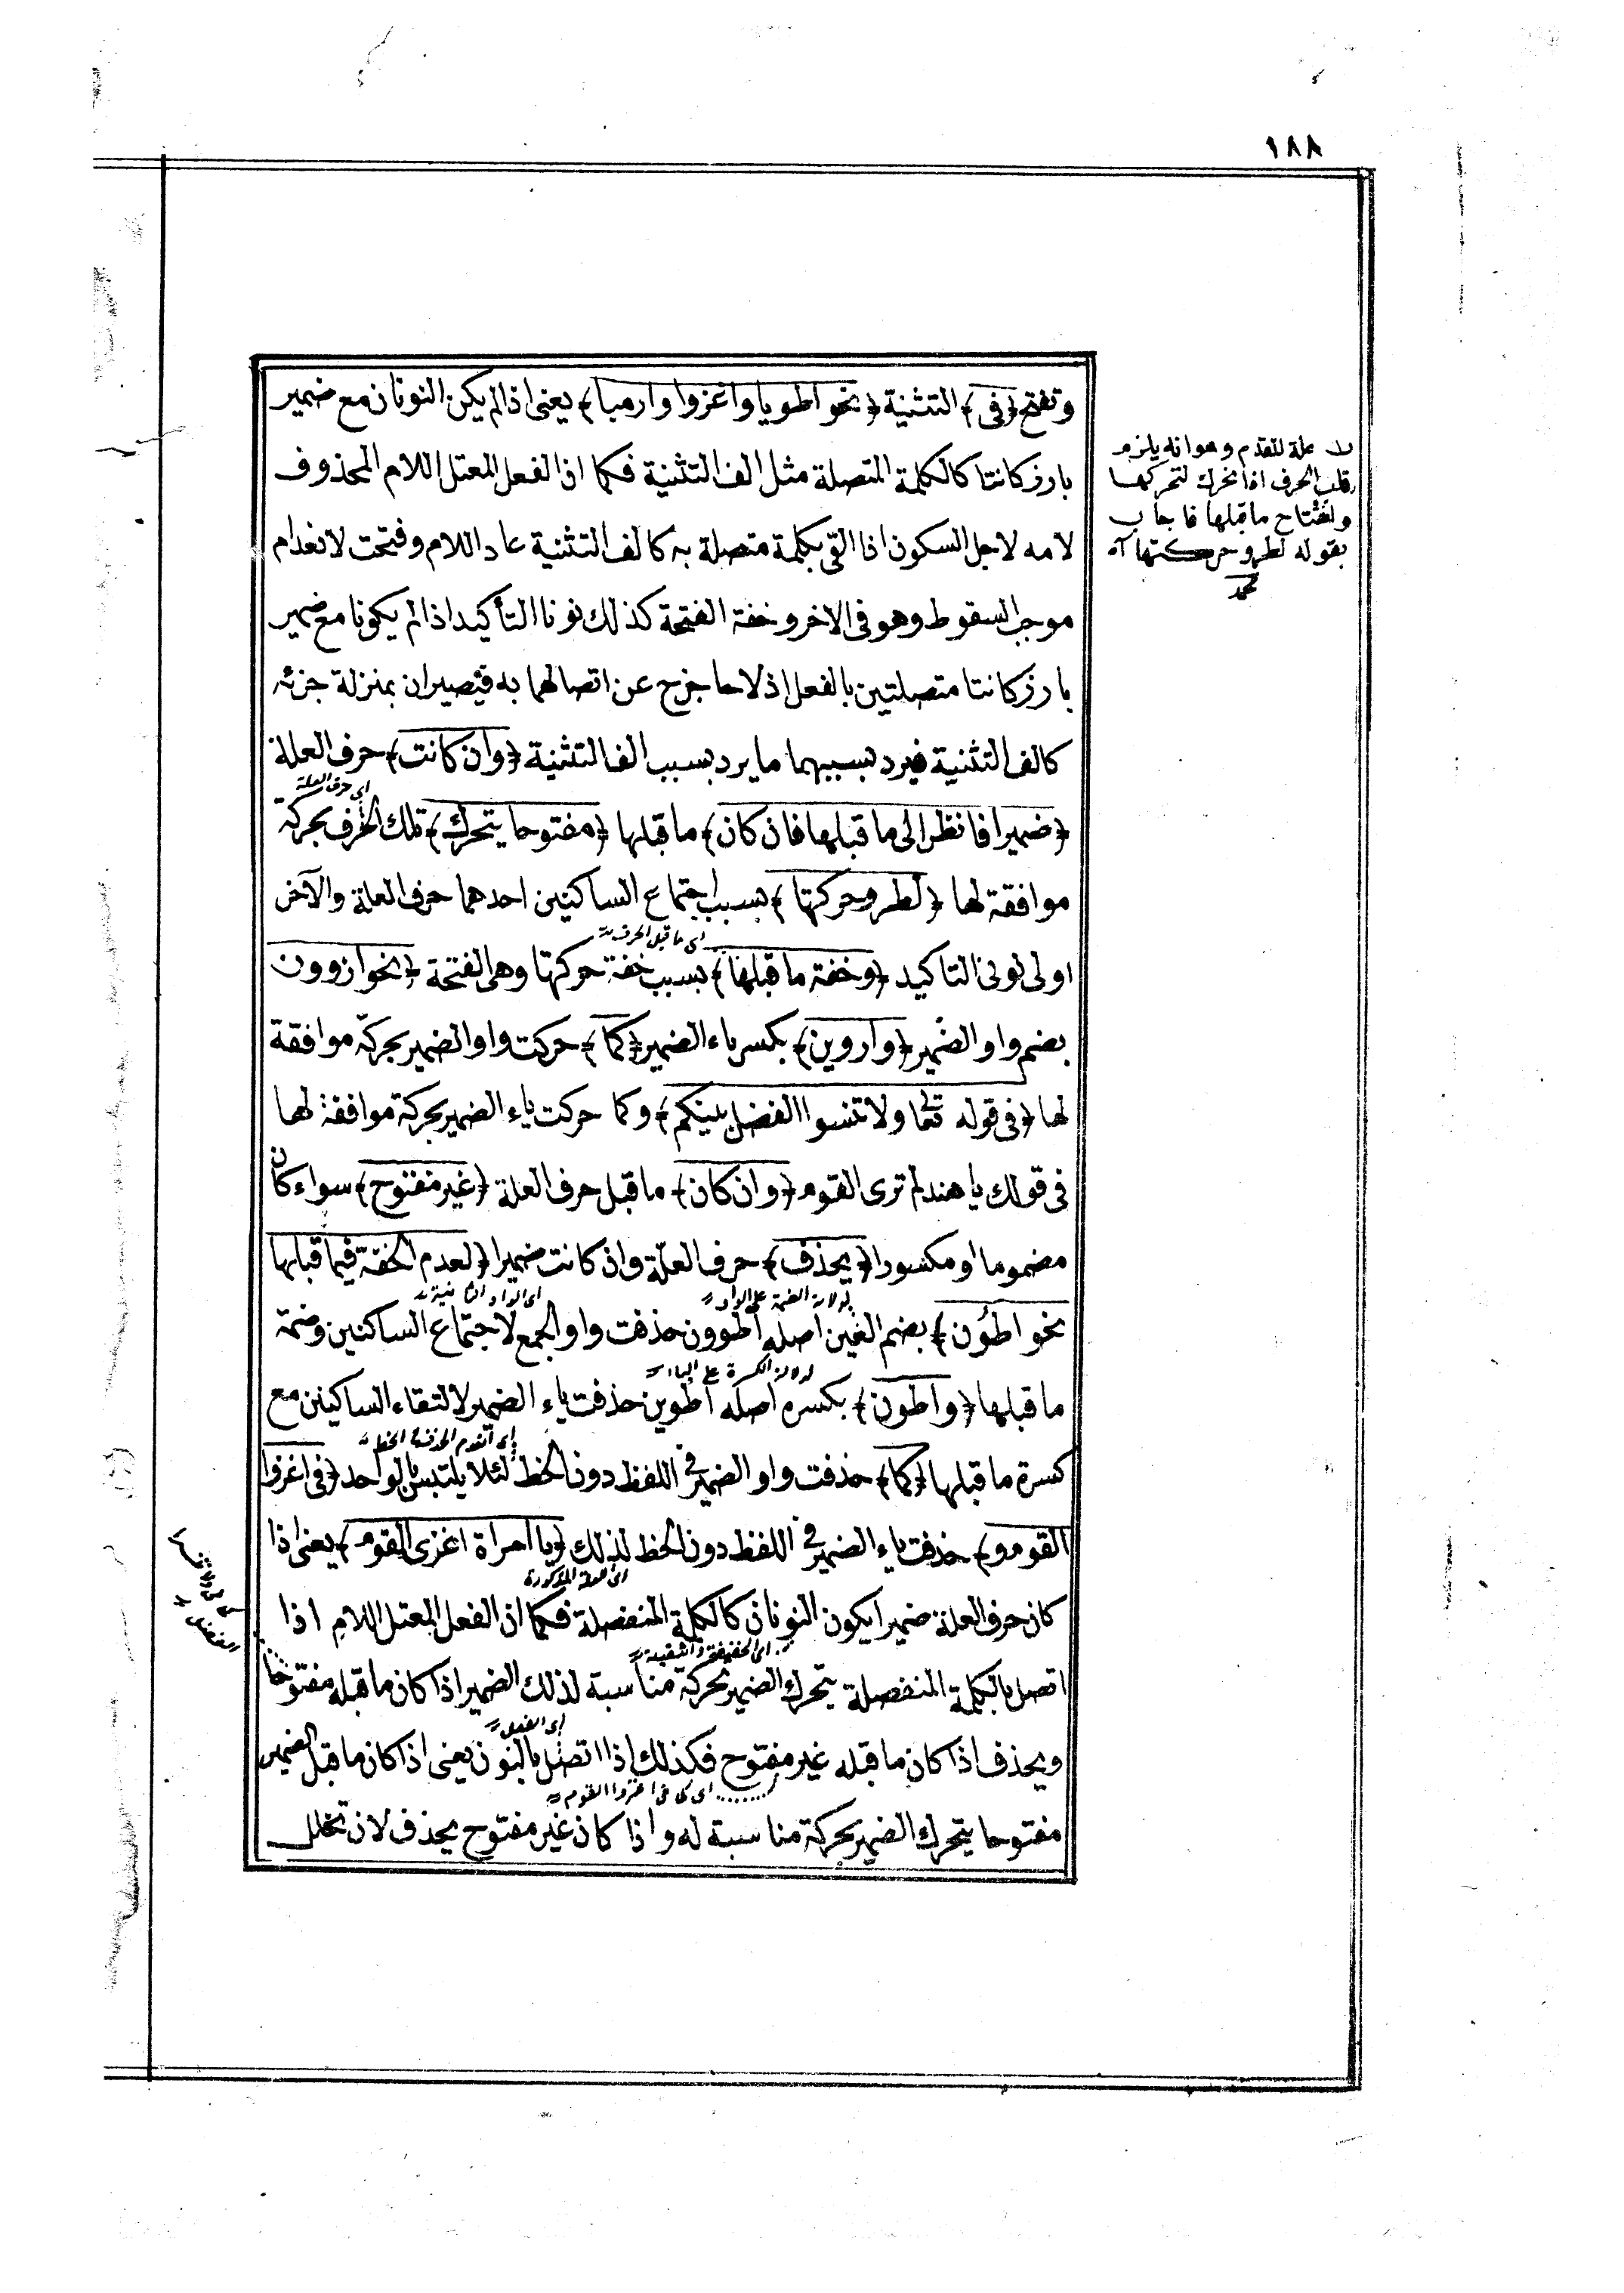 ١٨٨
وتفتح ﴿فى﴾ التثنية ﴿نحو اطويا واغزوا وارميا﴾ يعنى اذا لم يكن النونان مع ضمير
بارز كانتا كالكلمة المتصلة مثل الف التثنية فكما ان الفعل المعتل اللام المحذوف
لامه لاجل السكون اذا التقى بكلمة متصلة به كالف التثنية عاد اللام وفتحت لانعدام
موجب السقوط وهو فى الاخر وخفة الفتحة كذلك نونا التأكيد اذا لم يكونا مع ضمير
بارز كانتا متصلتين بالفعل اذ لا حاجز ح عن اتصالهما به فيصيران بمنزلة جزئه
كالف التثنية فيرد بسببهما ما يرد بسبب الف التثنية ﴿وان كانت﴾ حرف العلة
اى حرف العلة
﴿ضميرا فانظر الى ما قبلها فان كان﴾ ما قبلها ﴿مفتوحا يتحرك﴾ تلك الحرف بحركة
موافقة لها ﴿لطرو حركتها﴾ بسبب اجتماع الساكنين احدهما حرف العلة والآخر
اى ما قبل الحرف
اولى نونى التاكيد ﴿وخفة ما قبلها﴾ بسبب خفة حركتها وهى الفتحة ﴿نحو اروون
بضم واو الضمير ﴿واروين﴾ بكسر ياء الضمير ﴿كما﴾ حركت واو الضمير بحركة موافقة
لها ﴿فى قوله تعا ولا تنسوا الفضل بينكم﴾ وكما حركت ياء الضمير بحركة موافقة لها
فى قولك يا هند لم ترى القوم ﴿وان كان﴾ ما قبل حرف العلة ﴿غير مفتوح﴾ سواء كان
مضموما او مكسورا ﴿يحذف﴾ حرف العلّة وان كانت ضميرا ﴿لعدم الخفّة فيما قبلها
لدلالة الضمة على الواو
اى الواو الثانية
نحو اطوُن﴾ بضم العين اصله اطوون حذفت واو الجمع لاجتماع الساكنين وضمة
لدلالة الكسرة على الياء
ما قبلها ﴿واطون﴾ بكسره اصله اطوين حذفت ياء الضمير لالتقاء الساكنين مع
كسرة ما قبلها ﴿كما﴾ حذفت واو الضمير فى اللفظ دون الخط لئلا يلتبس بالواحد ﴿فى اغزوا
القوم و﴾ حذفت ياء الضمير فى اللفظ دون الخط لذلك ﴿يا امراة اغزى القوم﴾ يعنى اذا
كان حرف العلة ضميرا يكون النونان كالكلمة المنفصلة فكما ان الفعل المعتل اللام اذا
اى الخفيفة والثقيلة
اتصل بالكلمة المنفصلة يتحرك الضمير بحركة مناسبة لذلك الضمير اذا كان ما قبله مفتوحا
اى الفعل
ويحذف اذا كان ما قبله غير مفتوح فكذلك اذا اتصل بالنون يعنى اذا كان ما قبل الضمير
اى كما فى اغزوا القوم
مفتوحا يتحرك الضمير بحركة مناسبة له واذا كان غير مفتوح يحذف لان تخلل
علة للقدم وهو انه يلزم
قلب الحرف اذا تحرك لتحركها
وانفتاح ما قبلها فاجاب
بقوله لطرو حركتها آه
محمد